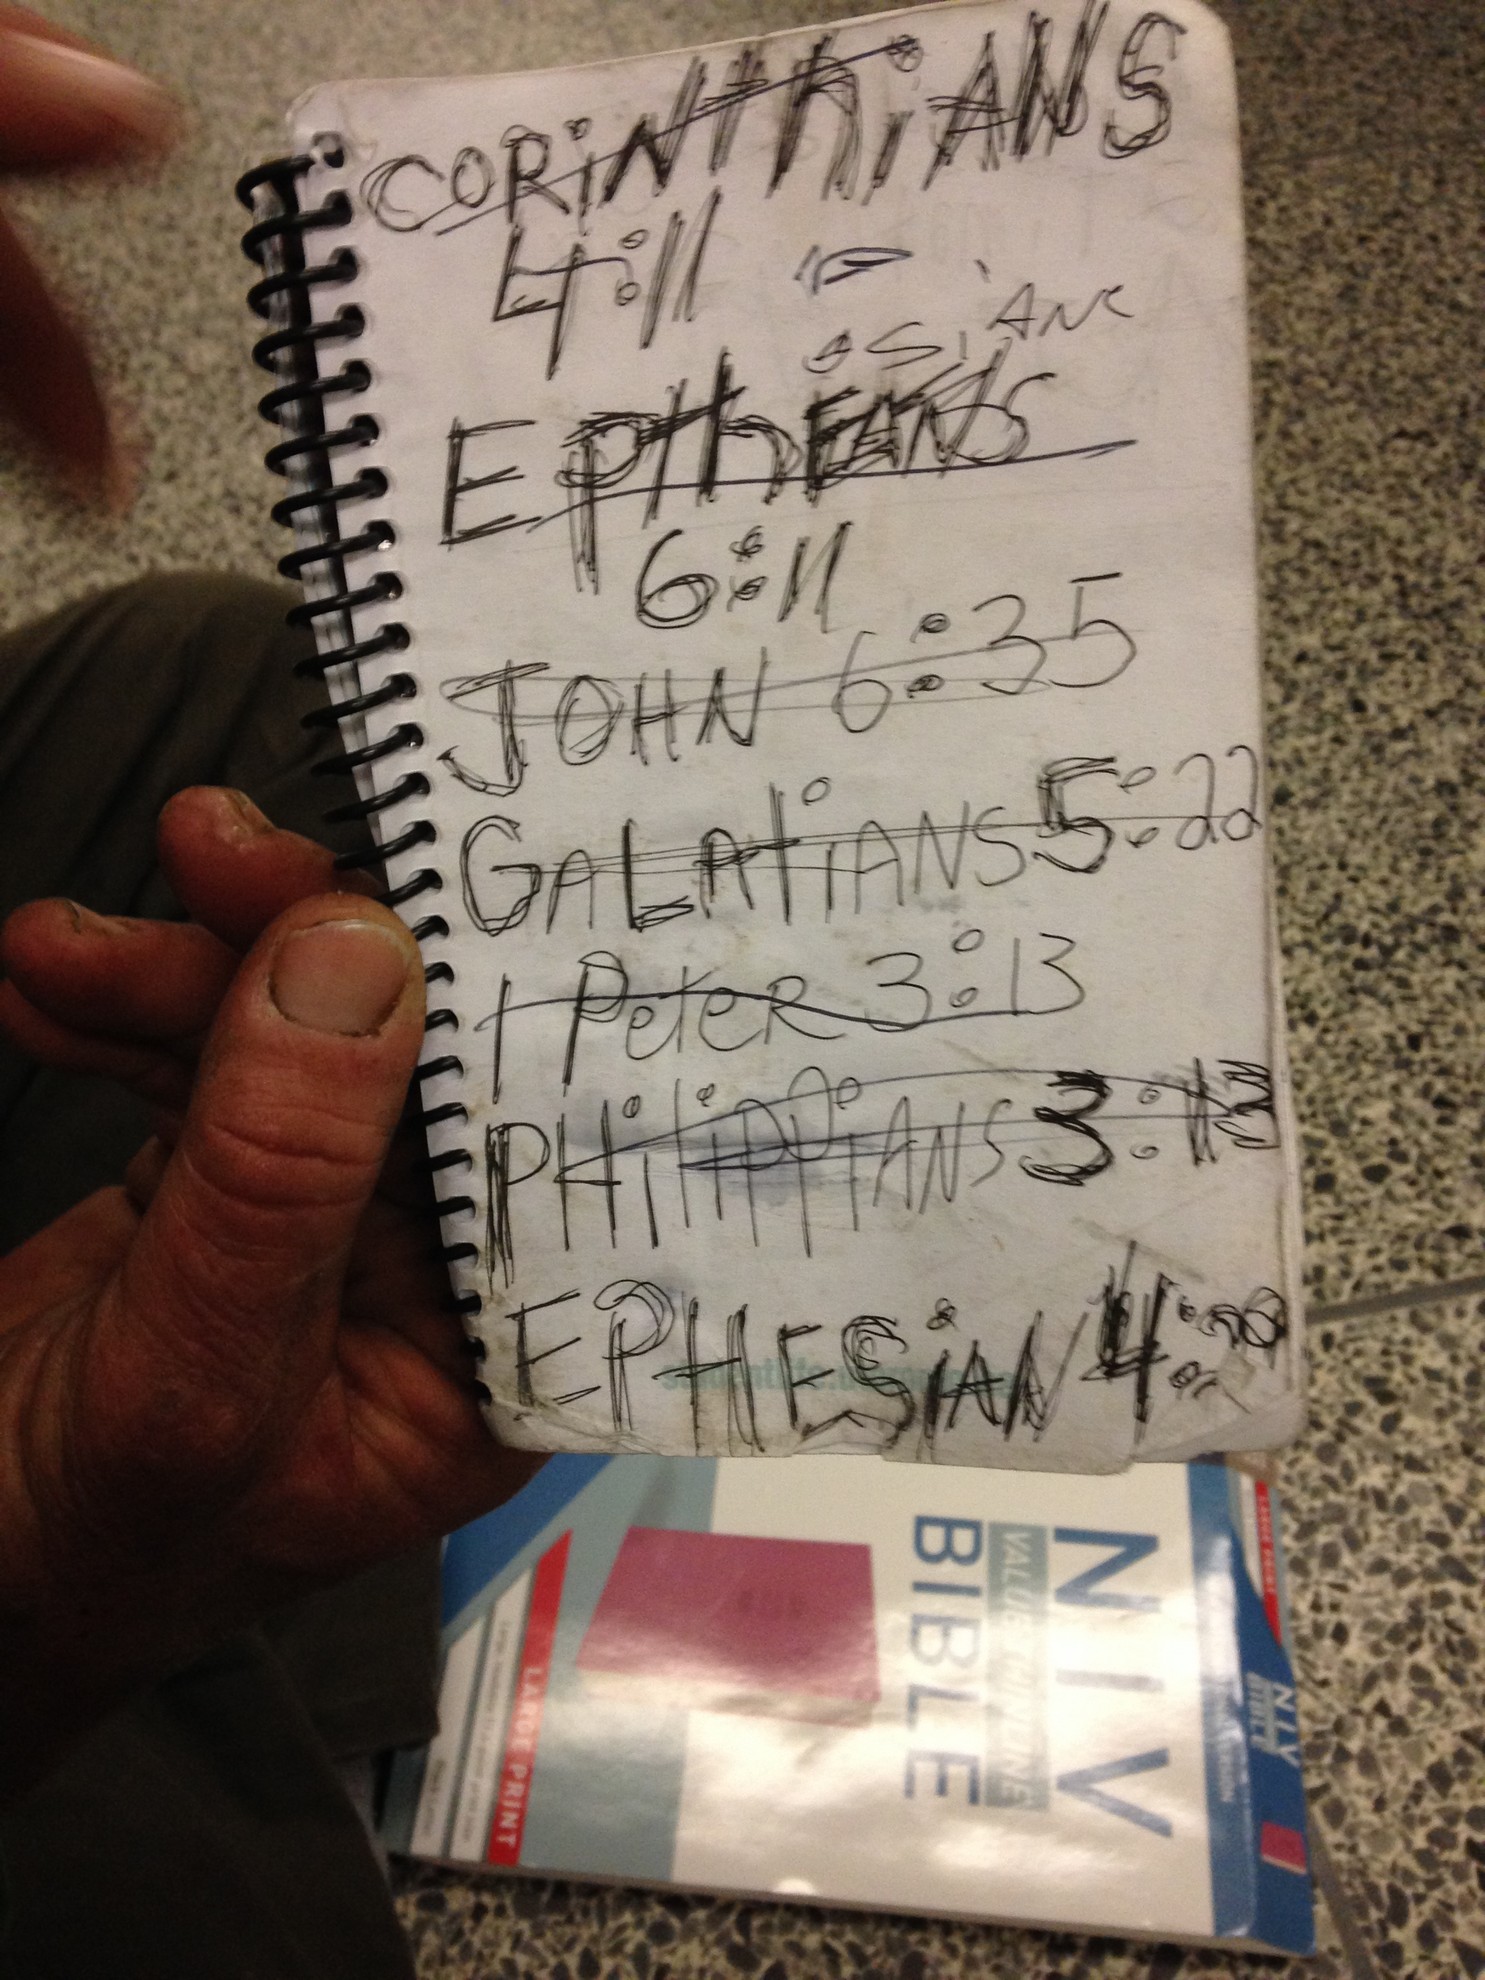 CORiNthiANS
4:11
SiANS
EPthEANS
6:11
JOHN 6:35
GALAtiANS 5:22
1 PeteR 3:13
PHiliPPiANS 3:13
EPHESiAN 4:28
NIV
VALUE
BIBLE
LARGE PRINT
NIV
LARGE PRINT